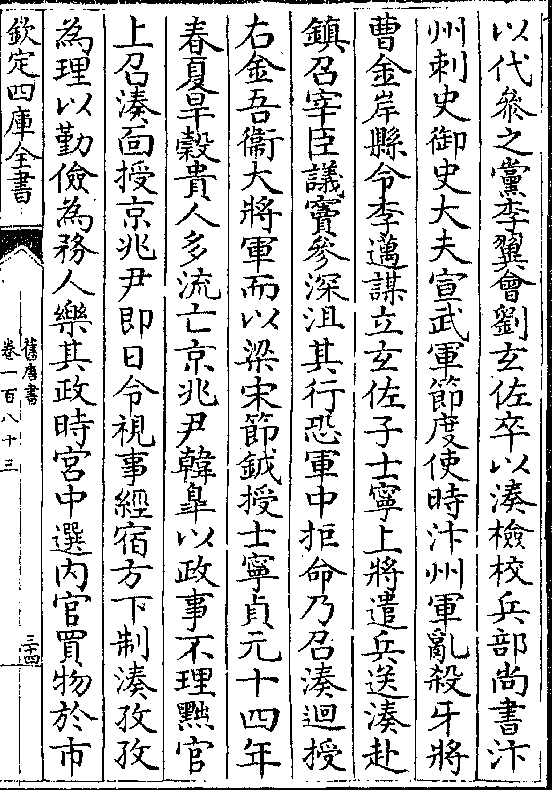 以代叅之黨李翼會劉𤣥佐卒以湊檢校兵部尚書汴
州刺史御史大夫宣武軍節度使時汴州軍亂殺牙將
曹金岸縣令李邁謀立𤣥佐子士寧上將遣兵送湊赴
鎮召宰臣議竇參深沮其行恐軍中拒命乃召湊迴授
右金吾衛大將軍而以梁宋節鉞授士寧貞元十四年
春夏旱穀貴人多流亡京兆尹韓臯以政事不理黜官
上召湊面授京兆尹即日令視事經宿方下制湊孜孜
為理以勤儉為務人樂其政時宮中選内官買物於市
欽定四庫全書
舊唐書
卷一百八十三
三十四